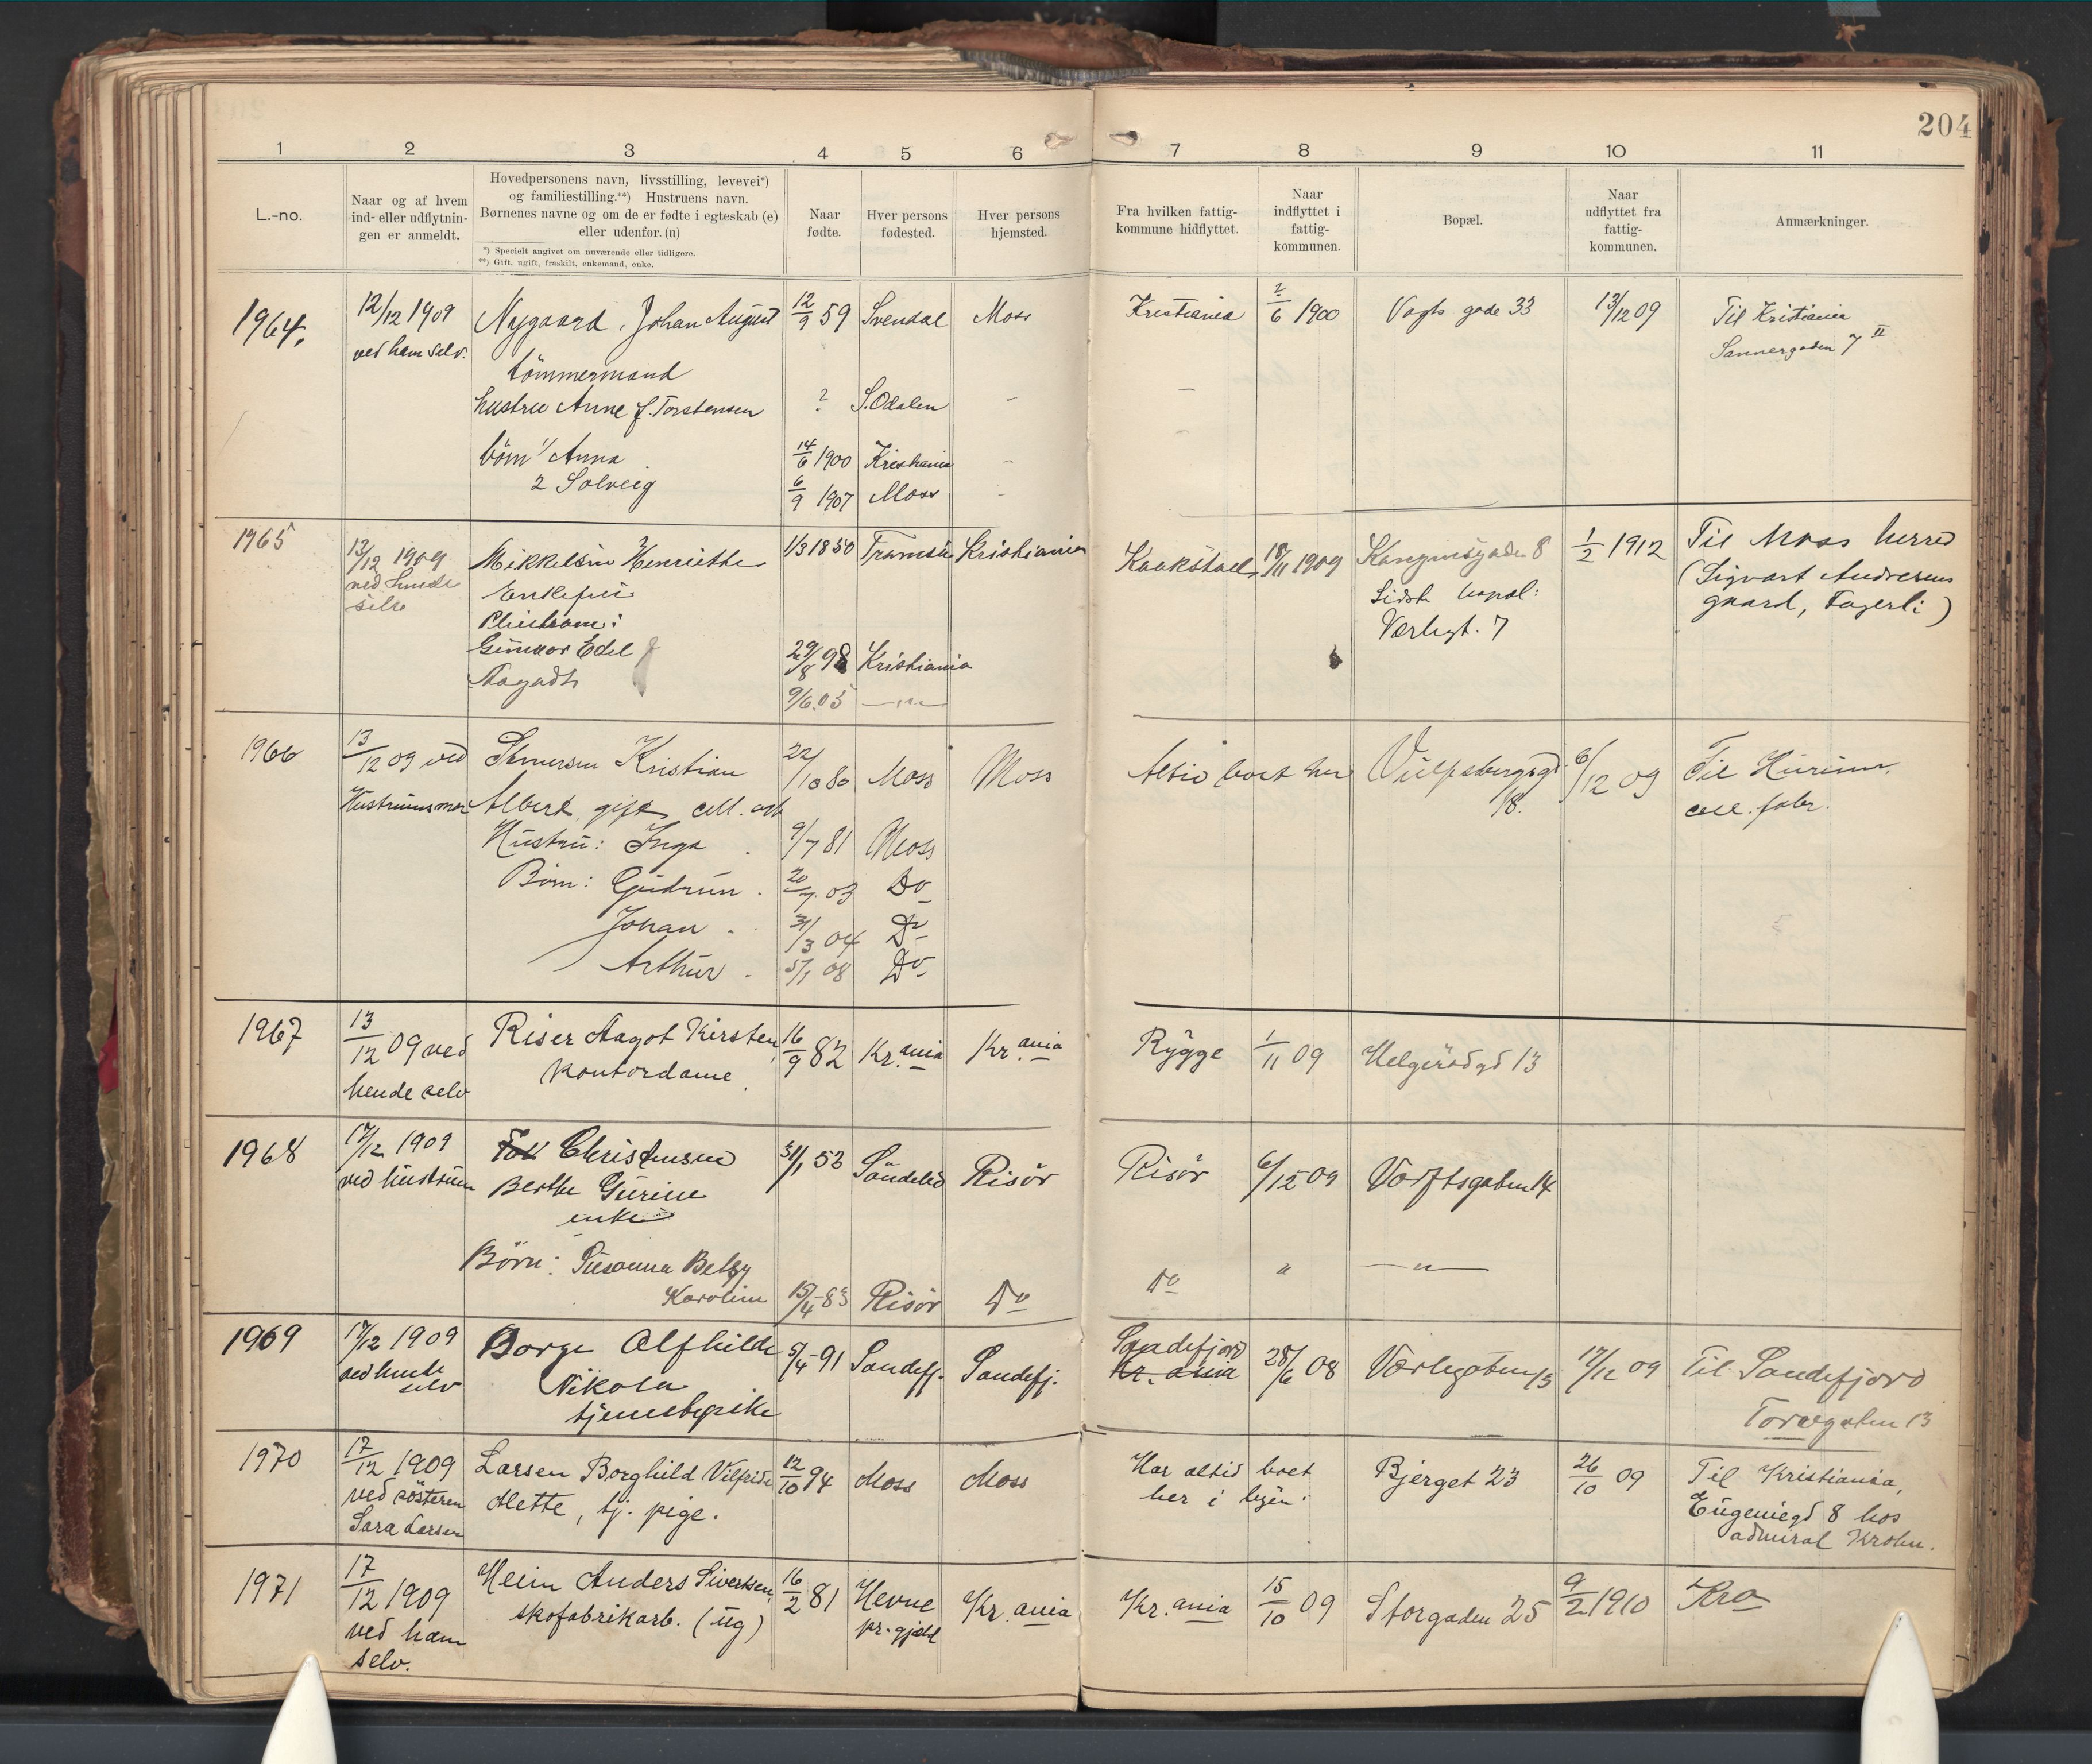 204
1 2 3 4 5 6 7 8 9 10 11
L.-no.
Naar og af hvem
ind- eller udflytnin-
gen er anmeldt.
Hovedpersonens navn, livsstilling, levevei*)
og familiestilling.**) Hustruens navn.
Børnenes navne og om de er fødte i egteskab (e)
eller udenfor. (u)
*) Specielt angivet om nuværende eller tidligere.
**) Gift, ugift, fraskilt, enkemand, enke.
Naar
fødte.
Hver persons
fødested.
Hver persons
hjemsted.
Fra hvilken fattig-
kommune hidflyttet.
Naar
indflyttet i
fattig-
kommunen.
Bopæl.
Naar
udflyttet fra
fattig-
kommunen.
Anmærkninger.
1964. 12/12 1909 Nygaard, Johan August 12/9 59 Svendal Moss Kristiania 2/6 1900 Vogts gade 33 13/12 09 Til Kristiania
ved ham selv. Sannergaden 7 II
tömmermand
hustru Anne f. Torstensen ? S. Odalen - -
börn 1/ Anna 14/6 1900 Kristiania - -
2 Solveig 6/9 1907 Moss -
1965 13/12 1909 Mikkelsen Henriette 1/3 1850 Tromsö Kristiania 18/11 1909 8 1/2 1912 Til Moss herred
ved hende Enkefru Sidste bopæl: (Sigvart Andresens
selv Pleiebarn: Værlegt. 7 gaard, Fagerli)
Gunvor Edel 29/8 98 Kristiania
Aagodt 9/6.05 -"-
1966 13/12 09 ved Kristian 22/10 80 Moss Moss Altid boet her Vulpsbergsgd 6/12 09 Til Hurum
Hustruens mor Albert, gift, cell. arb 18. cell. fabr.
Hustru: Inga 9/7 81 Moss
Börn: Gudrun. 20/7 03 Do
Johan. 31/3 04 Do
Arthur. 5/1 08 Do
1967 13/12 09 ved Riser Aagot Kirsten, 16/9 82 Kr.ania Kr.ania Rygge 1/11 09 Helgerödgd 13
hende selv Kontordame.
1968 17/12 1909 Christensen 31/1 53 Söndeled Risör Risör 6/12 09 Værftsgaten 14
ved hustruen Berthe Gurine
enke
Børn: Susanna Betzy Do " -"-
Karoline 15/4-83 Risör Do
1969 17/12 1909 Borge Alfhilde 5/4-91 Sandefj. Sandefj. Sandefjord Kr. ania 28/6 08 Værlegaten 13 17/12 09 Til Sandefjord
ved hende selv Nikola Torvgaten 13
tjenestepike
1970 17/12 1909 Larsen Borghild Vilfride 12/10 94 Moss Moss Har altid boet Bjerget 23 26/10 09 Til Kristiania,
ved søsteren Mette, tj. pige. her i byen. Eugeniegd 8 hos
Sara Larsen admiral Krohn.
1971 17/12 1909 Heim Anders Sivertsen, 16/2 81 Hevne Kr. ania Kr. ania 15/10 09 Storgaden 25 9/2 1910 Kra
ved ham skofabrikarb. (ug) pr. gjeld
selv.